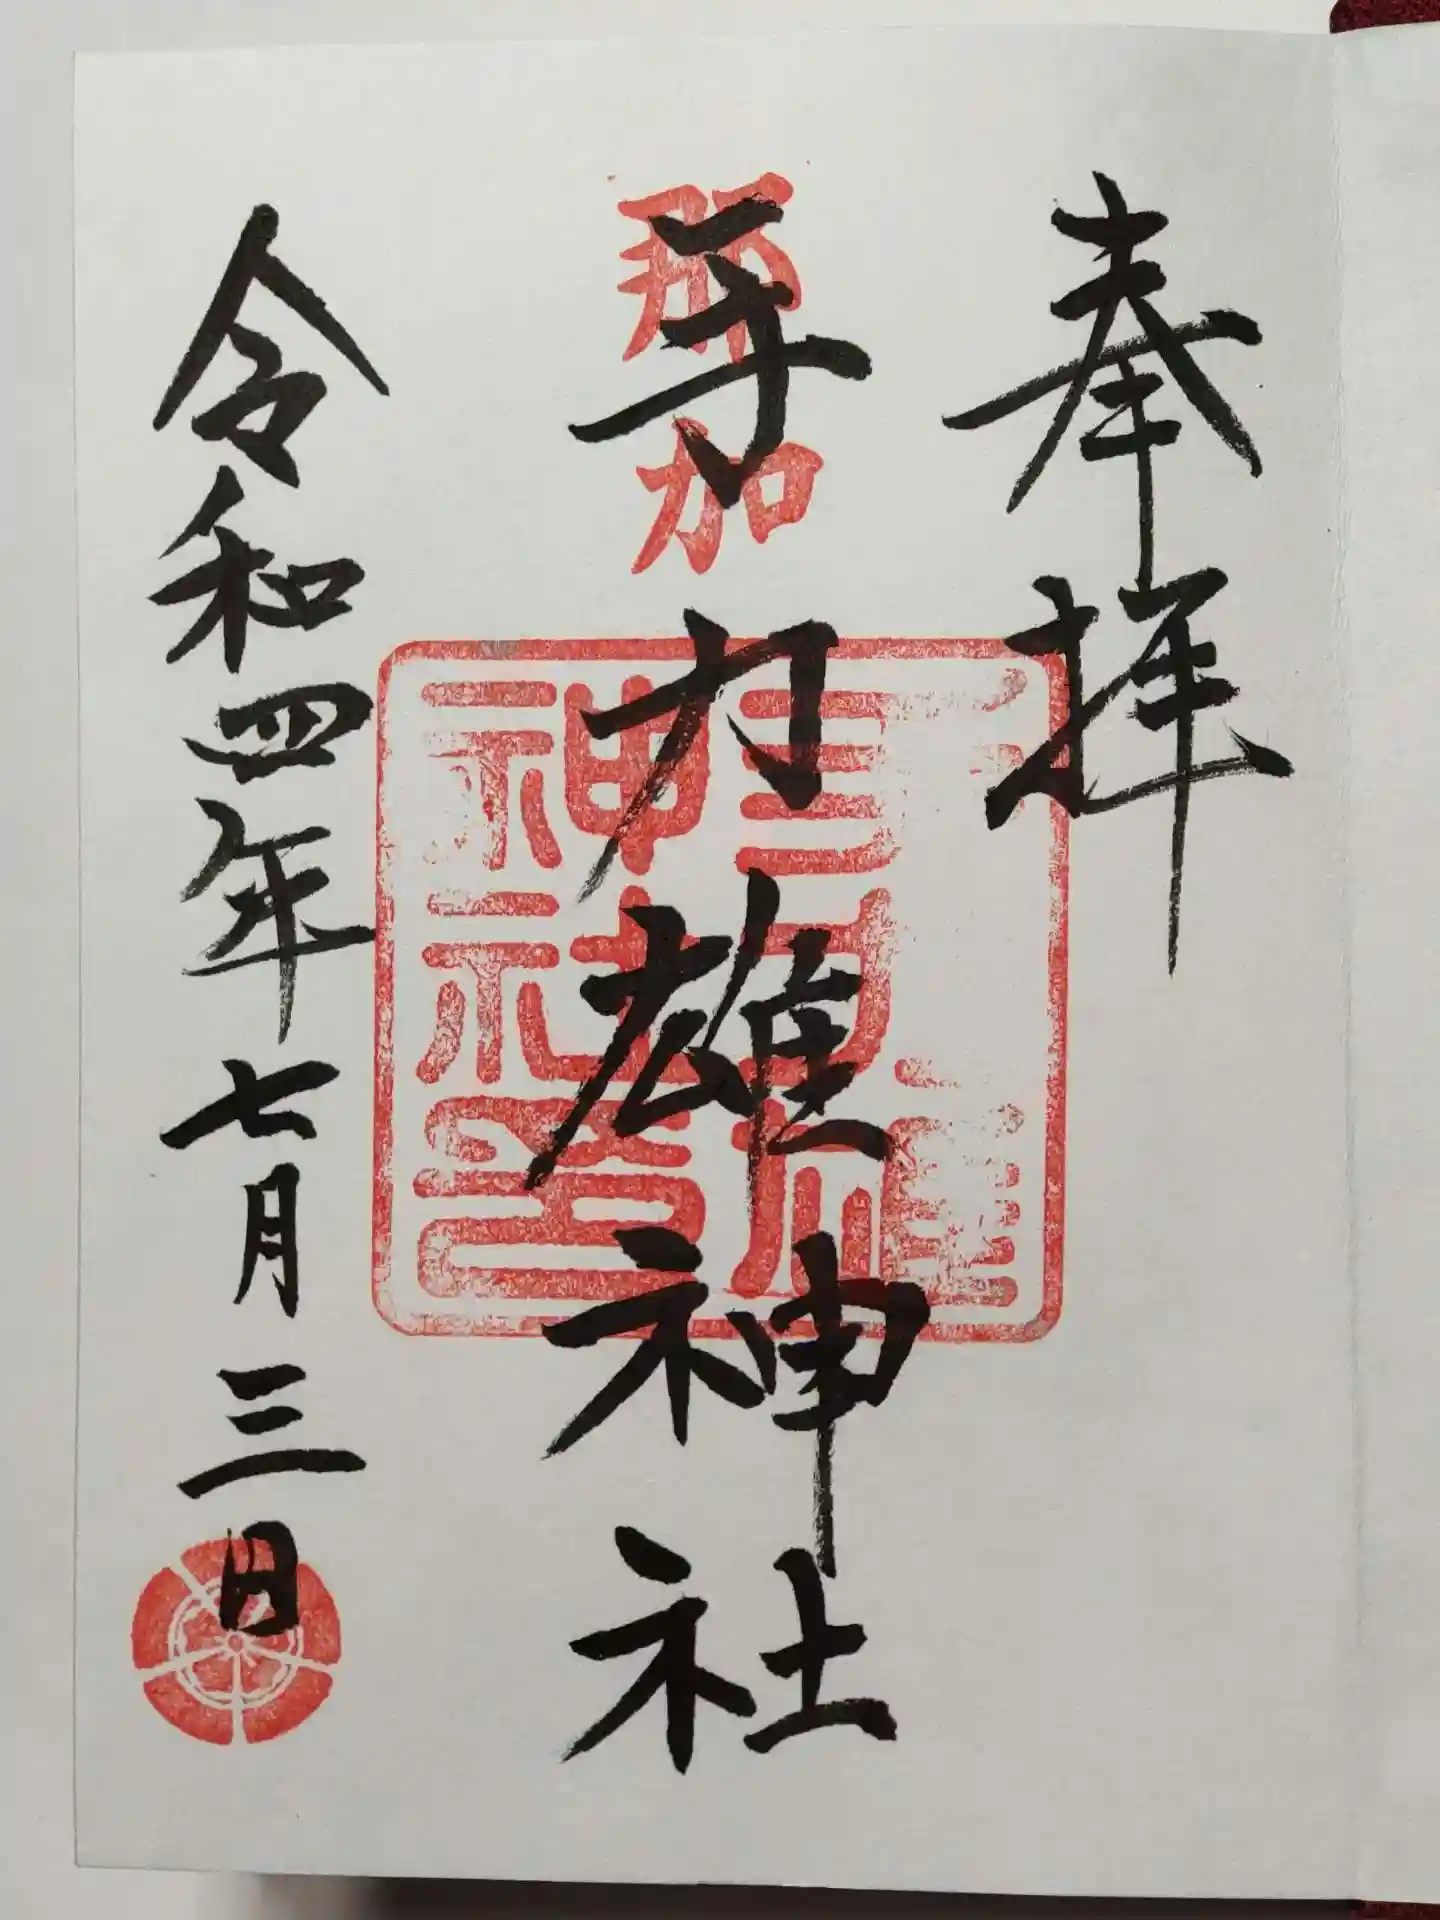 奉拝
那加
手力雄神社
手力雄神社印
令和四年七月三日